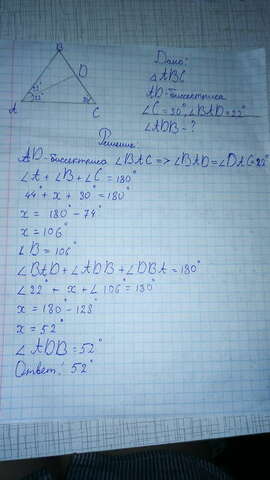 B
D
22°
22°
30°
A
C
Дано:
△ABC
AD-биссектриса
∠C = 30°, ∠BAD = 22°
∠ADB = ?
Решение:
AD-биссектриса ∠BAC => ∠BAD = ∠DAC = 22°
∠A + ∠B + ∠C = 180°
44° + x + 30° = 180°
x = 180° - 74°
x = 106°
∠B = 106°
∠BAD + ∠ADB + ∠DBA = 180°
∠22° + x + ∠106° = 180°
x = 180° - 128°
x = 52°
∠ADB = 52°
Ответ: 52°